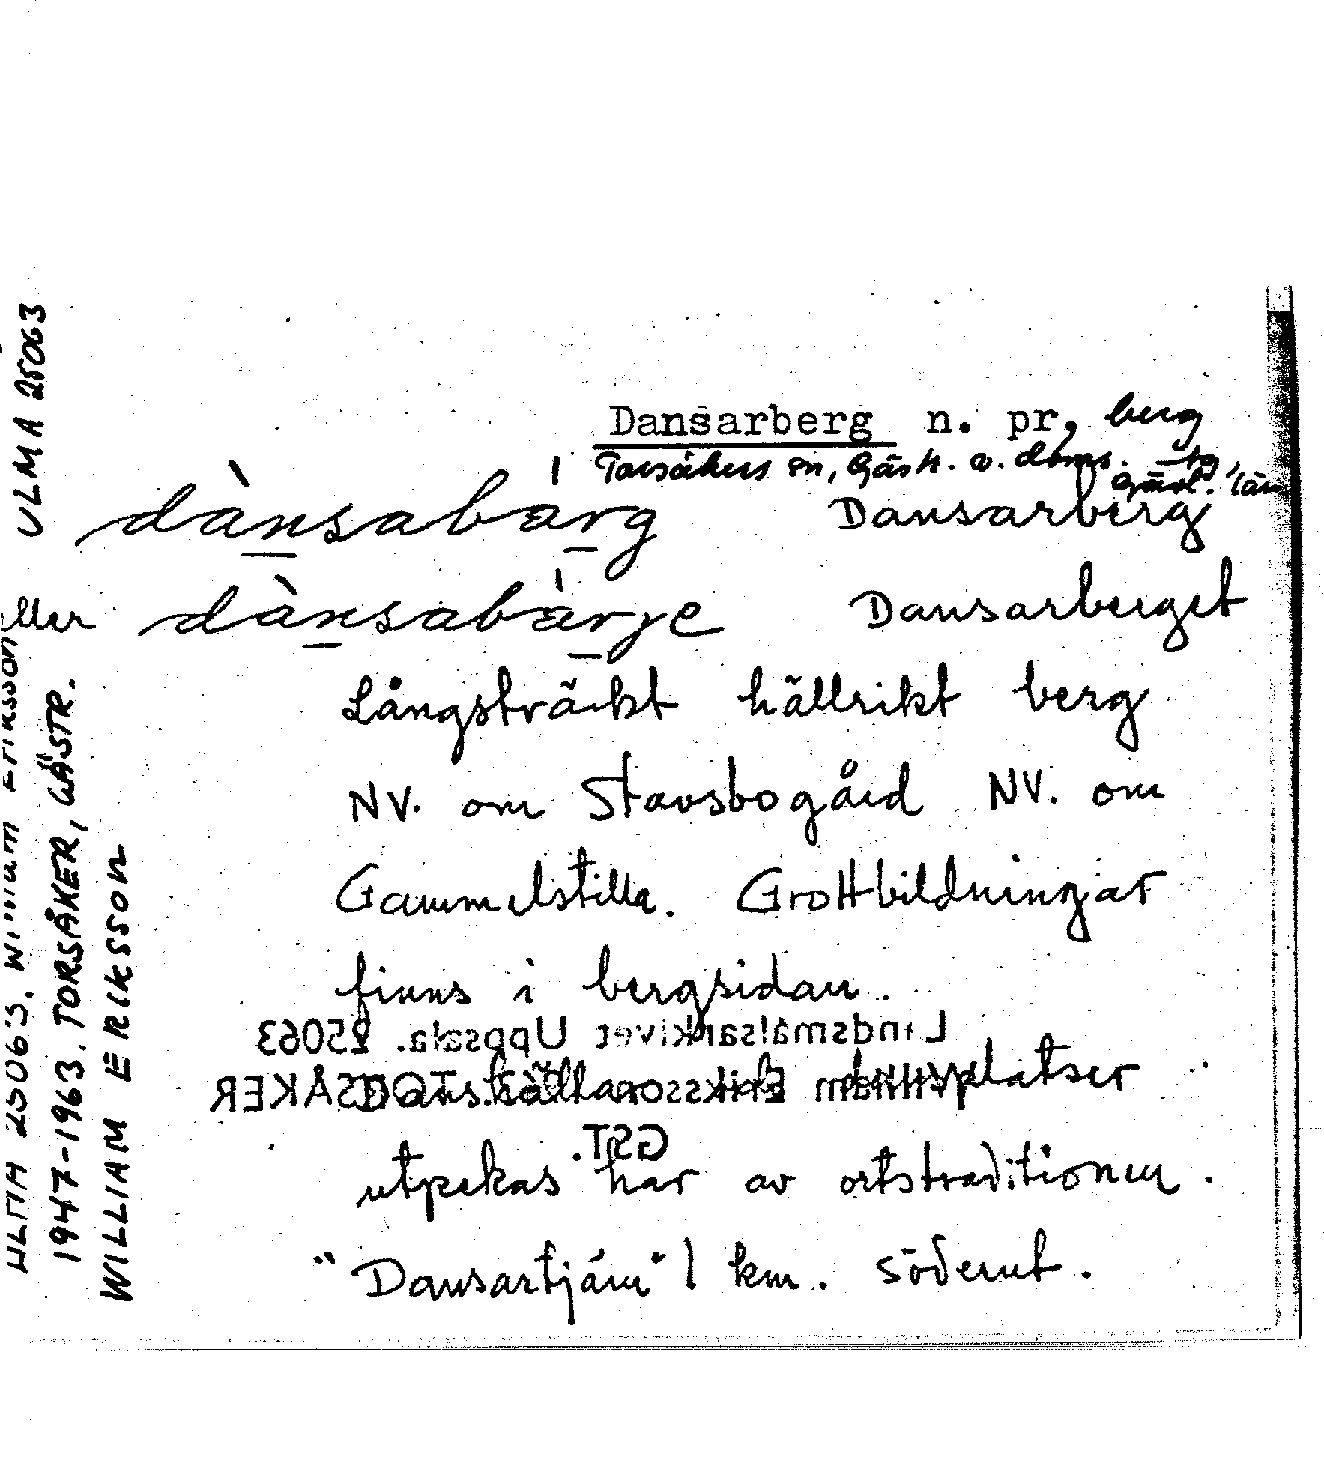 Dansarberg n. pr, berg
Torsåkers sn, Gästr. v. doms. tg,
Gävl. län
dànsabarg Dansarberg
eller dànsabarje Dansarberget
Långsträckt hällrikt berg
NV. om Stavsbogård NV. om
Gammelstilla. Grottbildningar
finns i bergsidan.
platser
utpekas här av ortstraditionen.
"Dansartjärn" 1 km. söderut.
Landsmålsarkivet Uppsala. 25063
William Eriksson TORSÅKER
GST.
ULMA 25063. William Eriksson
1947-1963. TORSÅKER, GÄSTR.
WILLIAM ERIKSSON
ULMA 25063